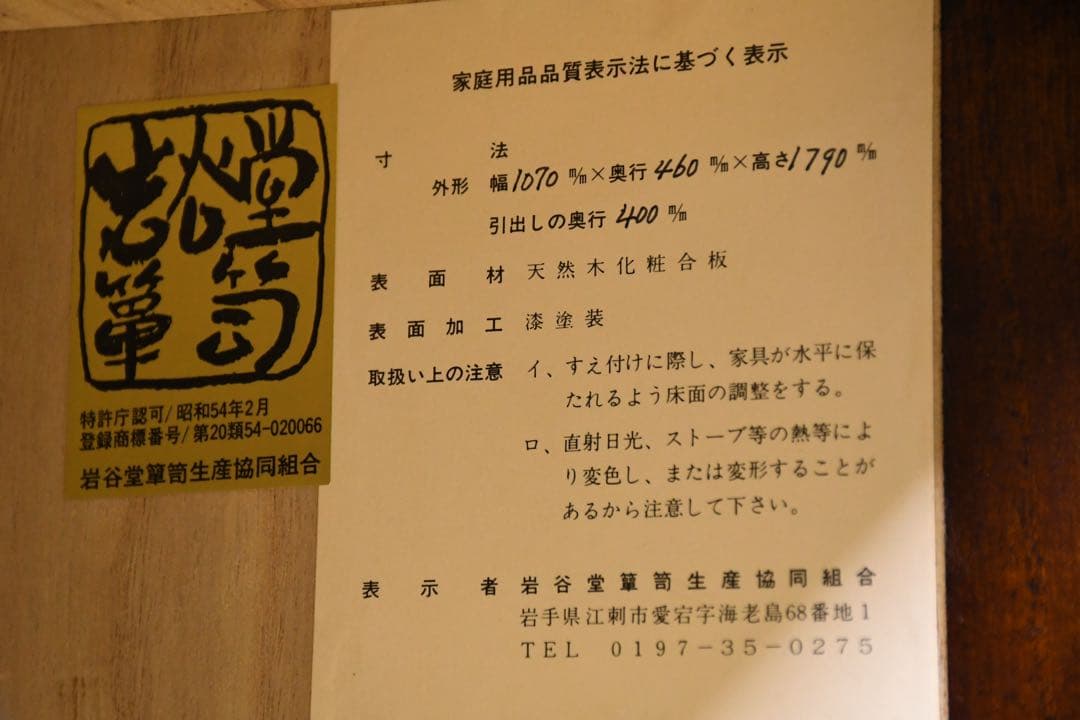 岩谷堂簞笥
特許庁認可/昭和54年2月
登録商標番号/第20類54-020066
岩谷堂簞笥生産協同組合
家庭用品品質表示法に基づく表示
寸法
外形 幅1070 ㎜×奥行460 ㎜×高さ1790 ㎜
引出しの奥行 400 ㎜
表面材 天然木化粧合板
表面加工 漆塗装
取扱い上の注意 イ、すえ付けに際し、家具が水平に保
たれるよう床面の調整をする。
ロ、直射日光、ストーブ等の熱等によ
り変色し、または変形することが
あるから注意して下さい。
表示者 岩谷堂簞笥生産協同組合
岩手県江刺市愛宕字海老島68番地1
TEL 0197-35-0275